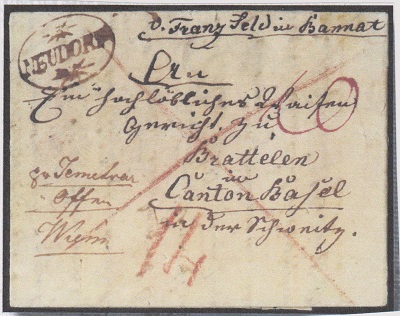 NEUDORF
d. Franz Feld in Bannat
An
Ein hochlöbliches Waisen
Gericht zu
Brattelen
im
Canton Basel
in der Schweitz.
pr Temeswar
Offen
Wienn